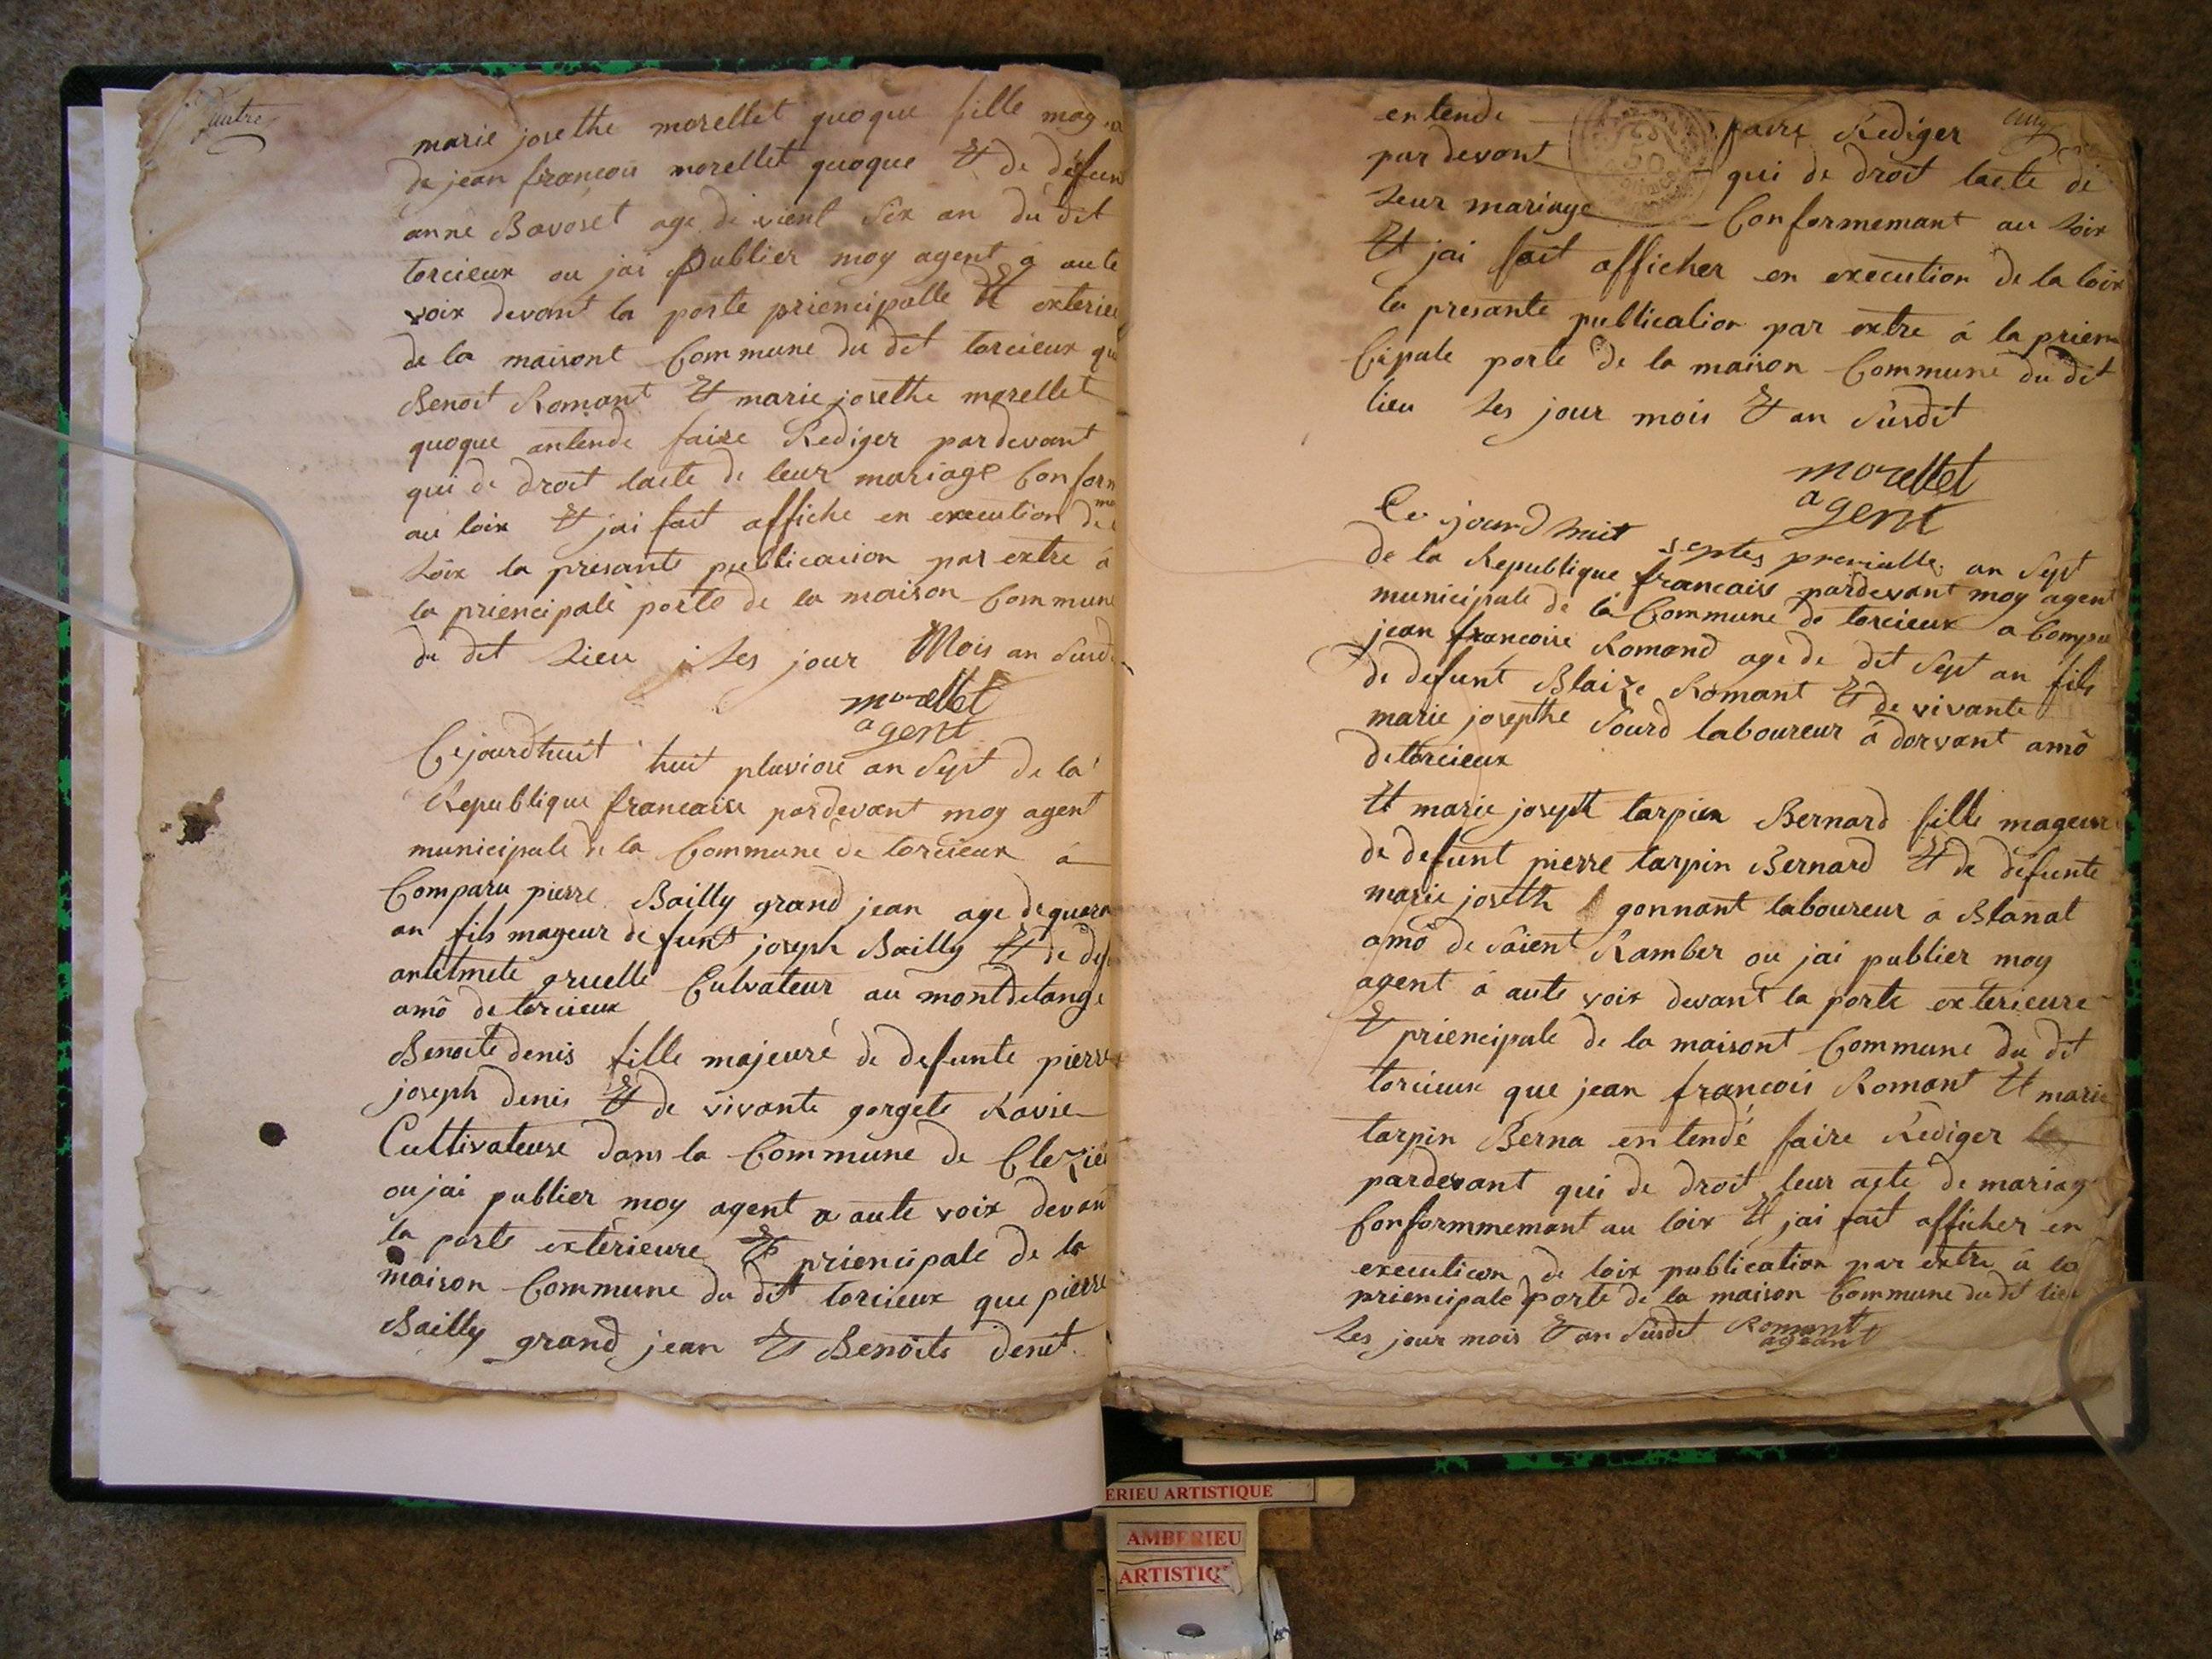 quatre
marie josethe morellet quoque fille mag
de jean francois morellet quoque Et de defun
anne Bavoset age de vient Six an du dit
torcieux ou jai publier moy agent a aute
voix devant la porte priencipalle Et exterieu
de la maisont Commune du dit torcieux que
Benoit Romant Et marie josethe morellet
quoque antende faire Rediger pardevant
qui de droit lacte de leur mariage Conform
ma
au loix Et jai fait affiche en execution de
Loix la presante publication par extre a
la priencipale porte de la maison Commune
du dit Lieu Les jour Mois an Susd
morellet
agent
Cejourdhuit huit pluviose an Sept de la
Republique francaise pardevant moy agent
municipale de la Commune de torcieux a
Comparu pierre Bailly grand jean age de quara
an fils mageur defunt joseph Bailly Et de def
antelmete gruelle Culvateur au montdelange
amô de torcieux
Benoite denis fille majeure de defunte pierre
joseph denis Et de vivante gorgete Ravie
Cultivateuse dans la Commune de Clezieu
ou jai publier moy agent a aute voix devan
la porte exterieure Et priencipale de la
maison Commune du dit torcieux que pierre
Bailly grand jean Et Benoite denit
cinq
entende faire Rediger
par devant qui de droit lacte de
Leur mariage Conformemant au Loix
Et jai fait afficher en execution de la loix
la presante publication par extre á la prien
Cipale porte de la maison Commune du dit
lieu Les jour mois Et an Susdit
morellet
agent
Ce jourdhuit septes prerialle an Sept
de la Republique francaise pardevant moy agent
municipale de la Commune de torcieux a Compru
jean francoise Romand age de dit Sept an fils
de defunt Blaize Romant Et de vivante
marie josephte Sourd laboureur á dorvant amô
de torcieux
Et marie joseph tarpien Bernard fille mageure
de defunt pierre tarpin Bernard Et de defunte
marie joseth gonnant laboureur a Blanat
amô de saient Ramber ou jai publier moy
agent a aute voix devant la porte exterieure
Et priencipale de la maisont Commune du dit
torcieux que jean francois Romant Et marie
tarpin Berna entendé faire Rediger
pardevant qui de droit leur acte de mariag
Conformmemant au loix Et jai fait afficher en
execution de loix publication par extre á la
priencipale porte de la maison Commune du dit lieu
Les jour mois Et an Susdit Romant
ageant
ERIEU ARTISTIQUE
AMBERIEU
ARTISTIQ